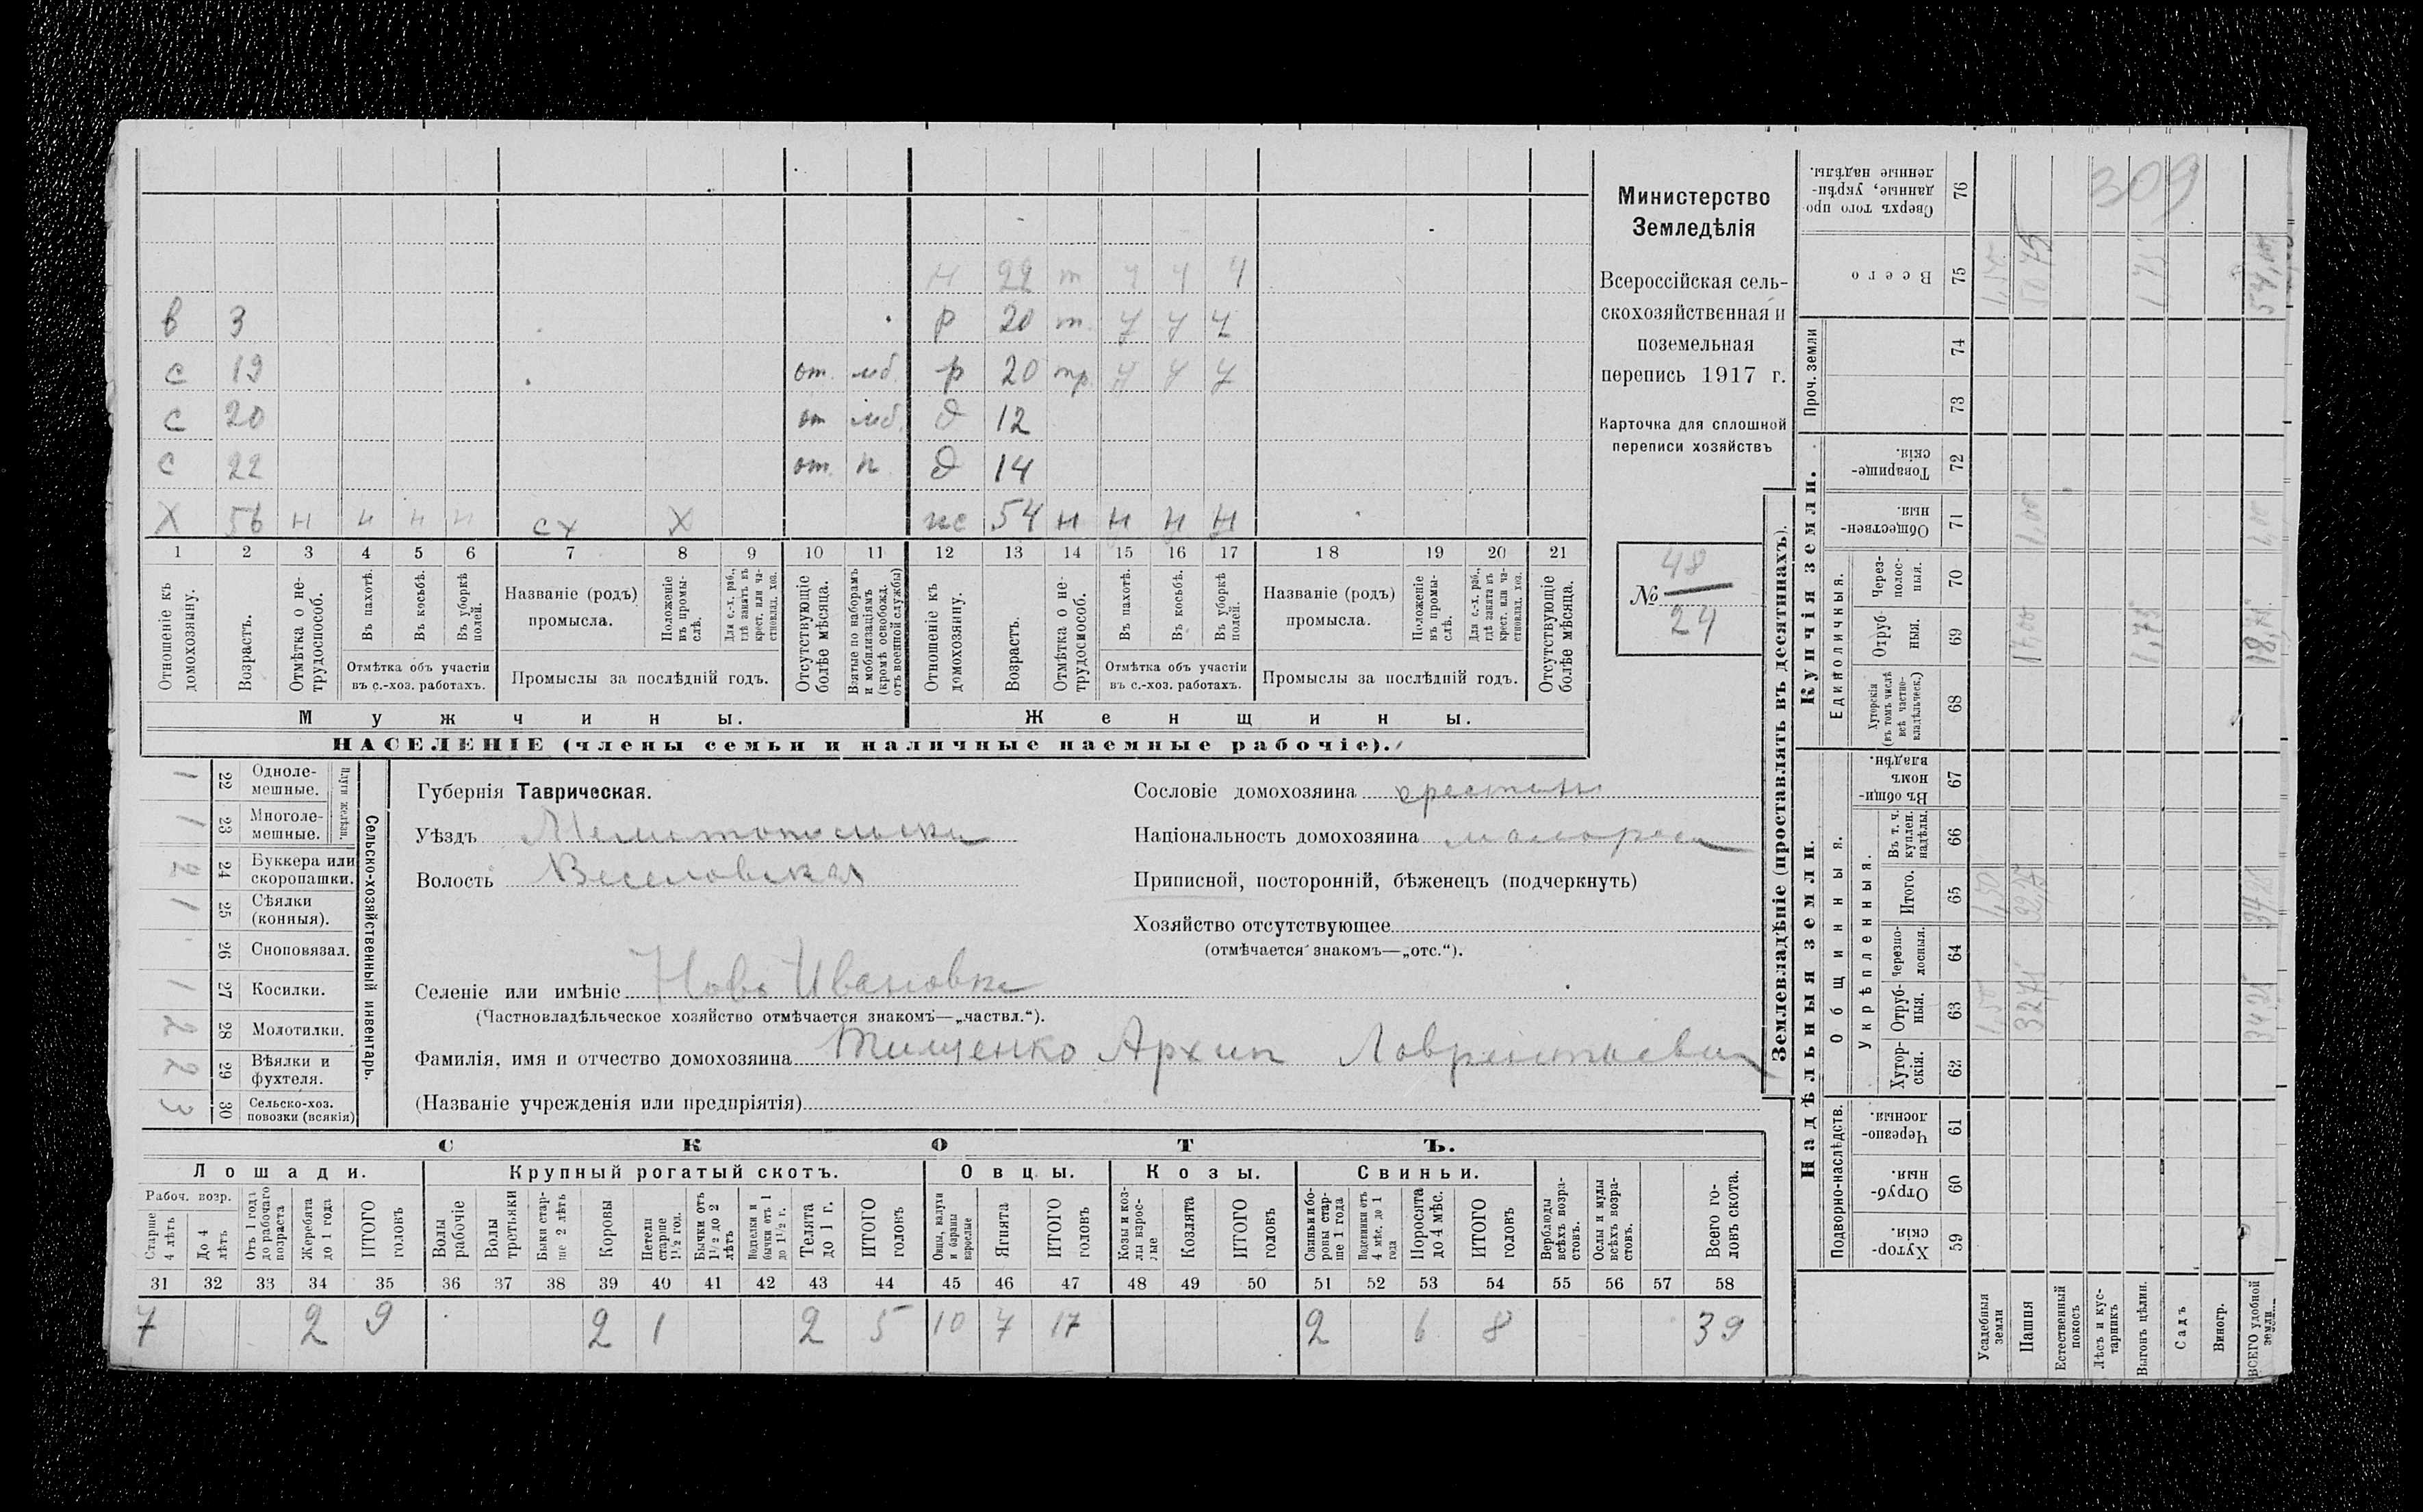 Министерство
Земледѣлія
Всероссійская сель-
скохозяйственная и
поземельная
перепись 1917 г.
Карточка для сплошной
переписи хозяйствъ
№ 48
24
н 22 т ч ч ч
в 3 р 20 т. ч ч ч
с 19 от. мб. р 20 тр. ч ч ч
с 20 от мб. д 12
с 22 от. п. д 14
Х 56 н н н н сх Х жс 54 н н н н
1 2 3 4 5 6 7 8 9 10 11 12 13 14 15 16 17 18 19 20 21
Отношеніе къ домохозяину.
Возрастъ.
Отмѣтка о не-трудоспособ.
Въ пахотѣ.
Въ косьбѣ.
Въ уборкѣ полей.
Отмѣтка объ участіи въ с.-хоз. работахъ.
Названіе (родъ) промысла.
Положеніе въ промы-слѣ.
Для с.-х. раб., гдѣ занятъ въ крест. или ча-стновлад. хоз.
Промыслы за послѣдній годъ.
Отсутствующіе болѣе мѣсяца.
Взятые по наборамъ и мобилизаціямъ (кромѣ освобожд. отъ военной службы)
Отношеніе къ домохозяину.
Возрастъ.
Отмѣтка о не-трудоспособ.
Въ пахотѣ.
Въ косьбѣ.
Въ уборкѣ полей.
Отмѣтка объ участіи въ с.-хоз. работахъ.
Названіе (родъ) промысла.
Положеніе въ промы-слѣ.
Для с.-х. раб., гдѣ занята въ крест. или ча-стновлад. хоз.
Промыслы за послѣдній годъ.
Отсутствующіе болѣе мѣсяца.
Мужчины. Женщины.
НАСЕЛЕНІЕ (члены семьи и наличные наемные рабочіе).
Сельско-хозяйственный инвентарь.
Плуги желѣзн.
1 22 Одноле-мешные.
1 23 Многоле-мешные.
2 24 Буккера или скоропашки.
1 25 Сѣялки (конныя).
26 Сноповязал.
1 27 Косилки.
2 28 Молотилки.
2 29 Вѣялки и фухтеля.
3 30 Сельско-хоз. повозки (всякія)
Губернія Таврическая.
Уѣздъ Мелитопольски
Волость Веселовская
Селеніе или имѣніе Ново Ивановка
(Частновладѣльческое хозяйство отмѣчается знакомъ—„частвл.“).
Фамилія, имя и отчество домохозяина Тищенко Архип Лаврентьевич
(Названіе учрежденія или предпріятія)
Сословіе домохозяина крестьян
Національность домохозяина малоросс
Приписной, посторонній, бѣженецъ (подчеркнуть)
Хозяйство отсутствующее
(отмѣчается знакомъ—„отс.“).
СКОТЪ.
Лошади. Крупный рогатый скотъ. Овцы. Козы. Свиньи.
Рабоч. возр.
Старше 4 лѣтъ
До 4 лѣтъ
Отъ 1 года до рабочаго возраста
Жеребята до 1 года
ИТОГО головъ
Волы рабочіе
Волы третьяки
Быки стар-ше 2 лѣтъ
Коровы
Нетели старше 1½ год.
Бычки отъ 1½ до 2 лѣтъ
Телки и бычки отъ 1 до 1½ г.
Телята до 1 г.
ИТОГО головъ
Овцы, валухи и бараны взрослые
Ягнята
ИТОГО головъ
Козы и коз-лы взрос-лые
Козлята
ИТОГО головъ
Свиньи и бо-ровы стар-ше 1 года
Подсвинки отъ 4 мѣс. до 1 года
Поросята до 4 мѣс.
ИТОГО головъ
Верблюды всѣхъ возра-стовъ.
Ослы и мулы всѣхъ возра-стовъ.
Всего го-ловъ скота.
31 32 33 34 35 36 37 38 39 40 41 42 43 44 45 46 47 48 49 50 51 52 53 54 55 56 57 58
7 2 9 2 1 2 5 10 7 17 2 6 8 39
Землевладѣніе (проставлять въ десятинахъ).
309
Сверхъ того про-данные, укрѣп-ленные надѣлы. 76
Всего 75 1,50 50,75 1,75 54,00
Проч. земли 74
73
Купчія земли.
Товарище-скія. 72
Обществен-ныя. 71 1,00 1,00
Единоличныя.
Через-полос-ныя. 70
Отруб-ныя. 69 17,00 1,75 18,75
Хуторскія (въ томъ числѣ всѣ частно-владѣльческ.) 68
Надѣльныя земли.
Общинныя.
Въ общи-номъ владѣн. 67
Укрѣпленныя.
Въ т. ч. куплен. надѣлы. 66
Итого. 65 1,50 34,25
Черезпо-лосныя. 64
Отруб-ныя. 63 1,50 32,75 34,25
Хутор-скія. 62
Подворно-наслѣдств.
Черезпо-лосныя. 61
Отруб-ныя. 60
Хутор-скія. 59
Усадебныя земли
Пашня
Естественный покосъ
Лѣсъ и кус-тарникъ
Выгонъ цѣлин.
Садъ
Виногр.
ВСЕГО удобной земли